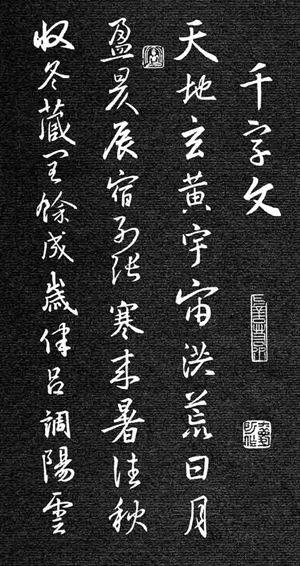 千字文
天地玄黃宇宙洪荒日月
盈昃辰宿列張寒來暑往秋
收冬藏閏餘成歲律呂調陽雲